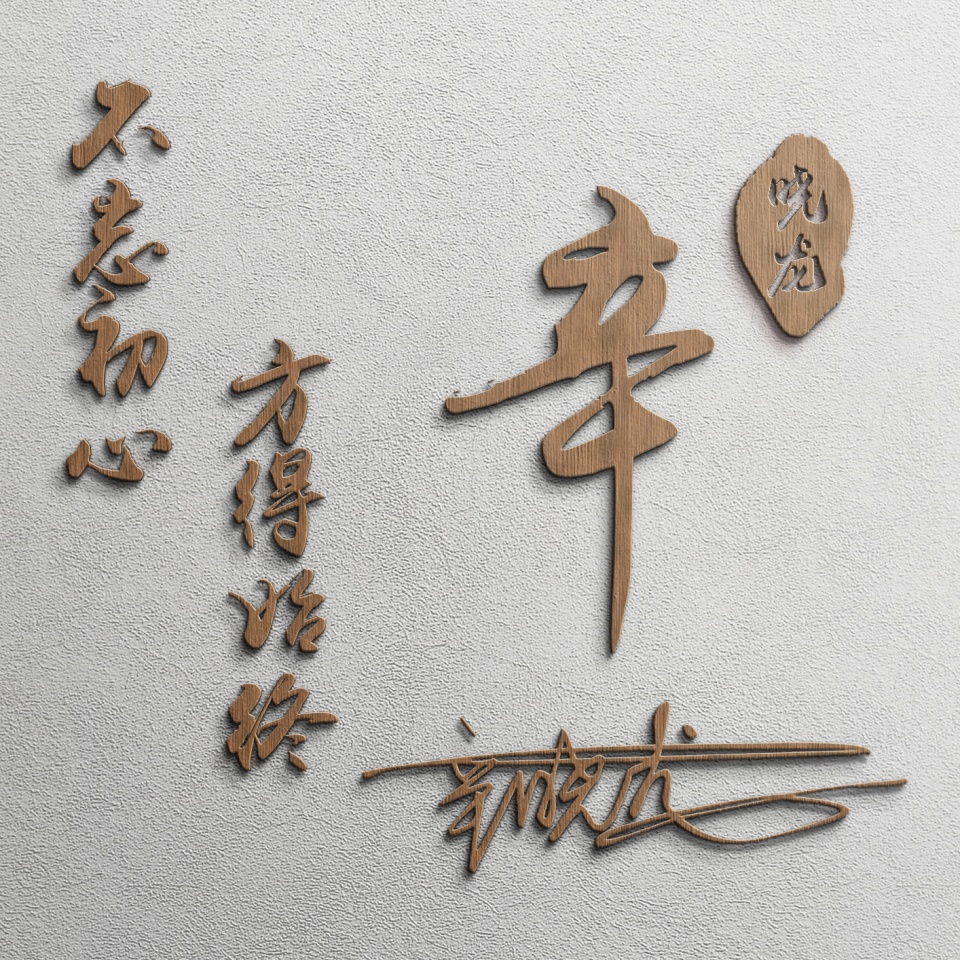 不忘初心
方得始终
辛
晓龙
辛晓龙